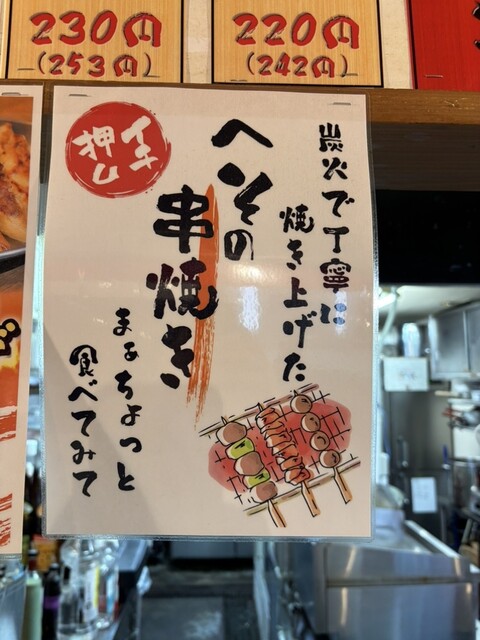 230円
(253円)
220円
(242円)
イチ
押し
炭火で丁寧に
焼き上げた
へその
串焼き
まぁちょっと
食べてみて